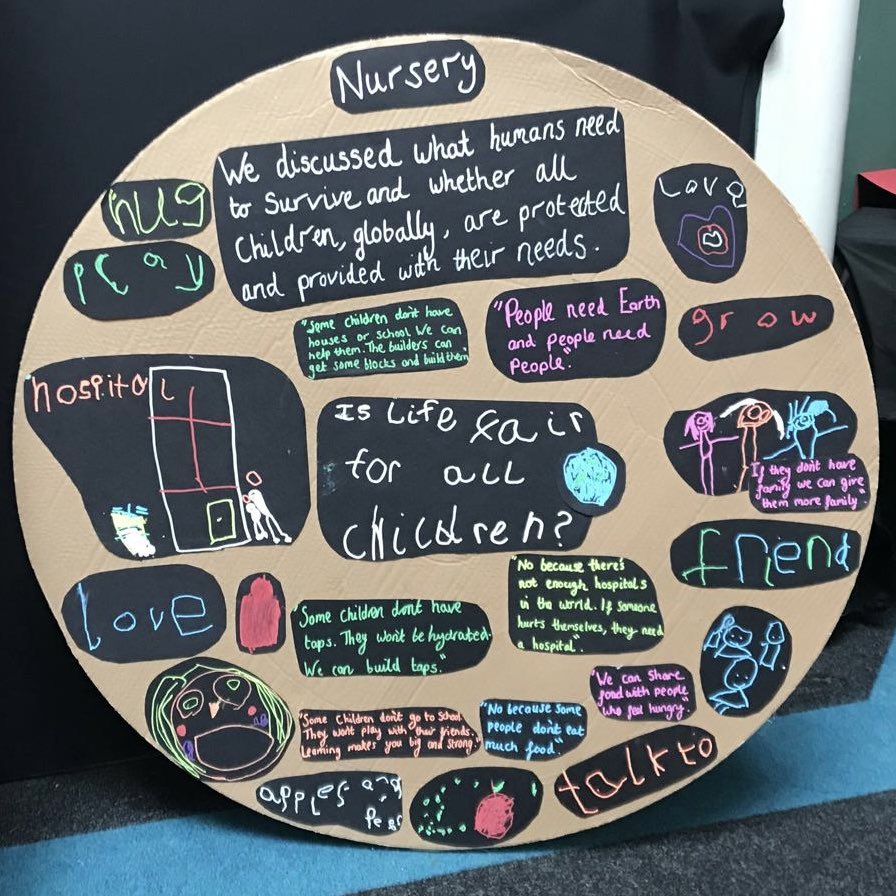 Nursery
We discussed what humans need
to Survive and whether all
Children, globally, are protected
and provided with their needs.
hug
play
Love
"Some children don't have
houses or school. We can
help them. The builders can
get some blocks and build them"
"People need Earth
and people need
People."
grow
hospital
Is Life fair
for all
children?
If they don't have
family we can give
them more family"
friend
love
Some children dont have
taps. They won't be hydrated.
We can build taps."
"No because there's
not enough hospitals
in the world. If someone
hurts themselves, they need
a hospital".
"We can share
food with people
who feel hungry."
"Some Children don't go to School.
They won't play with their friends.
Learning makes you big and strong."
"No because some
people don't eat
much food."
talk to
apples and